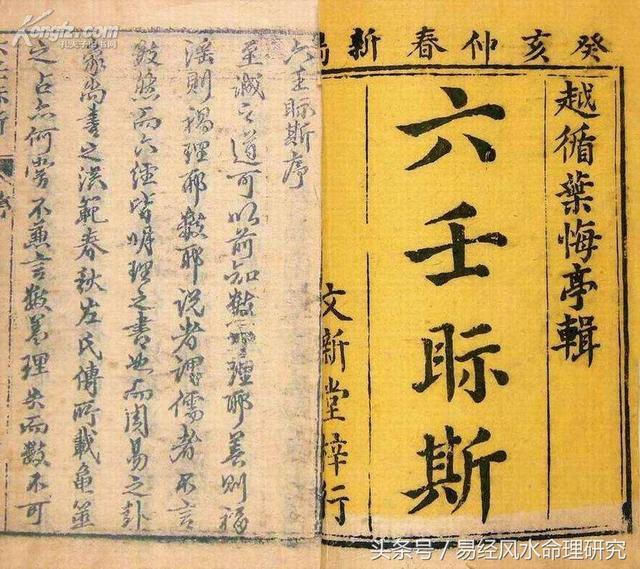 癸亥仲春新
越循葉悔亭輯
六壬眎斯
文新堂梓行
六壬眎斯序
至誠之道可以前知數耶理耶善則福
滛則禍理耶數耶說者謂儒者不言
數然而六經皆明理之書也而周易之卦
象尚書之洪範春秋左氏傳所載龜筮
之占亦何嘗不兼言數蓋理失而數不可
Kongfz.com
孔夫子旧书网
头条号／易经风水命理研究